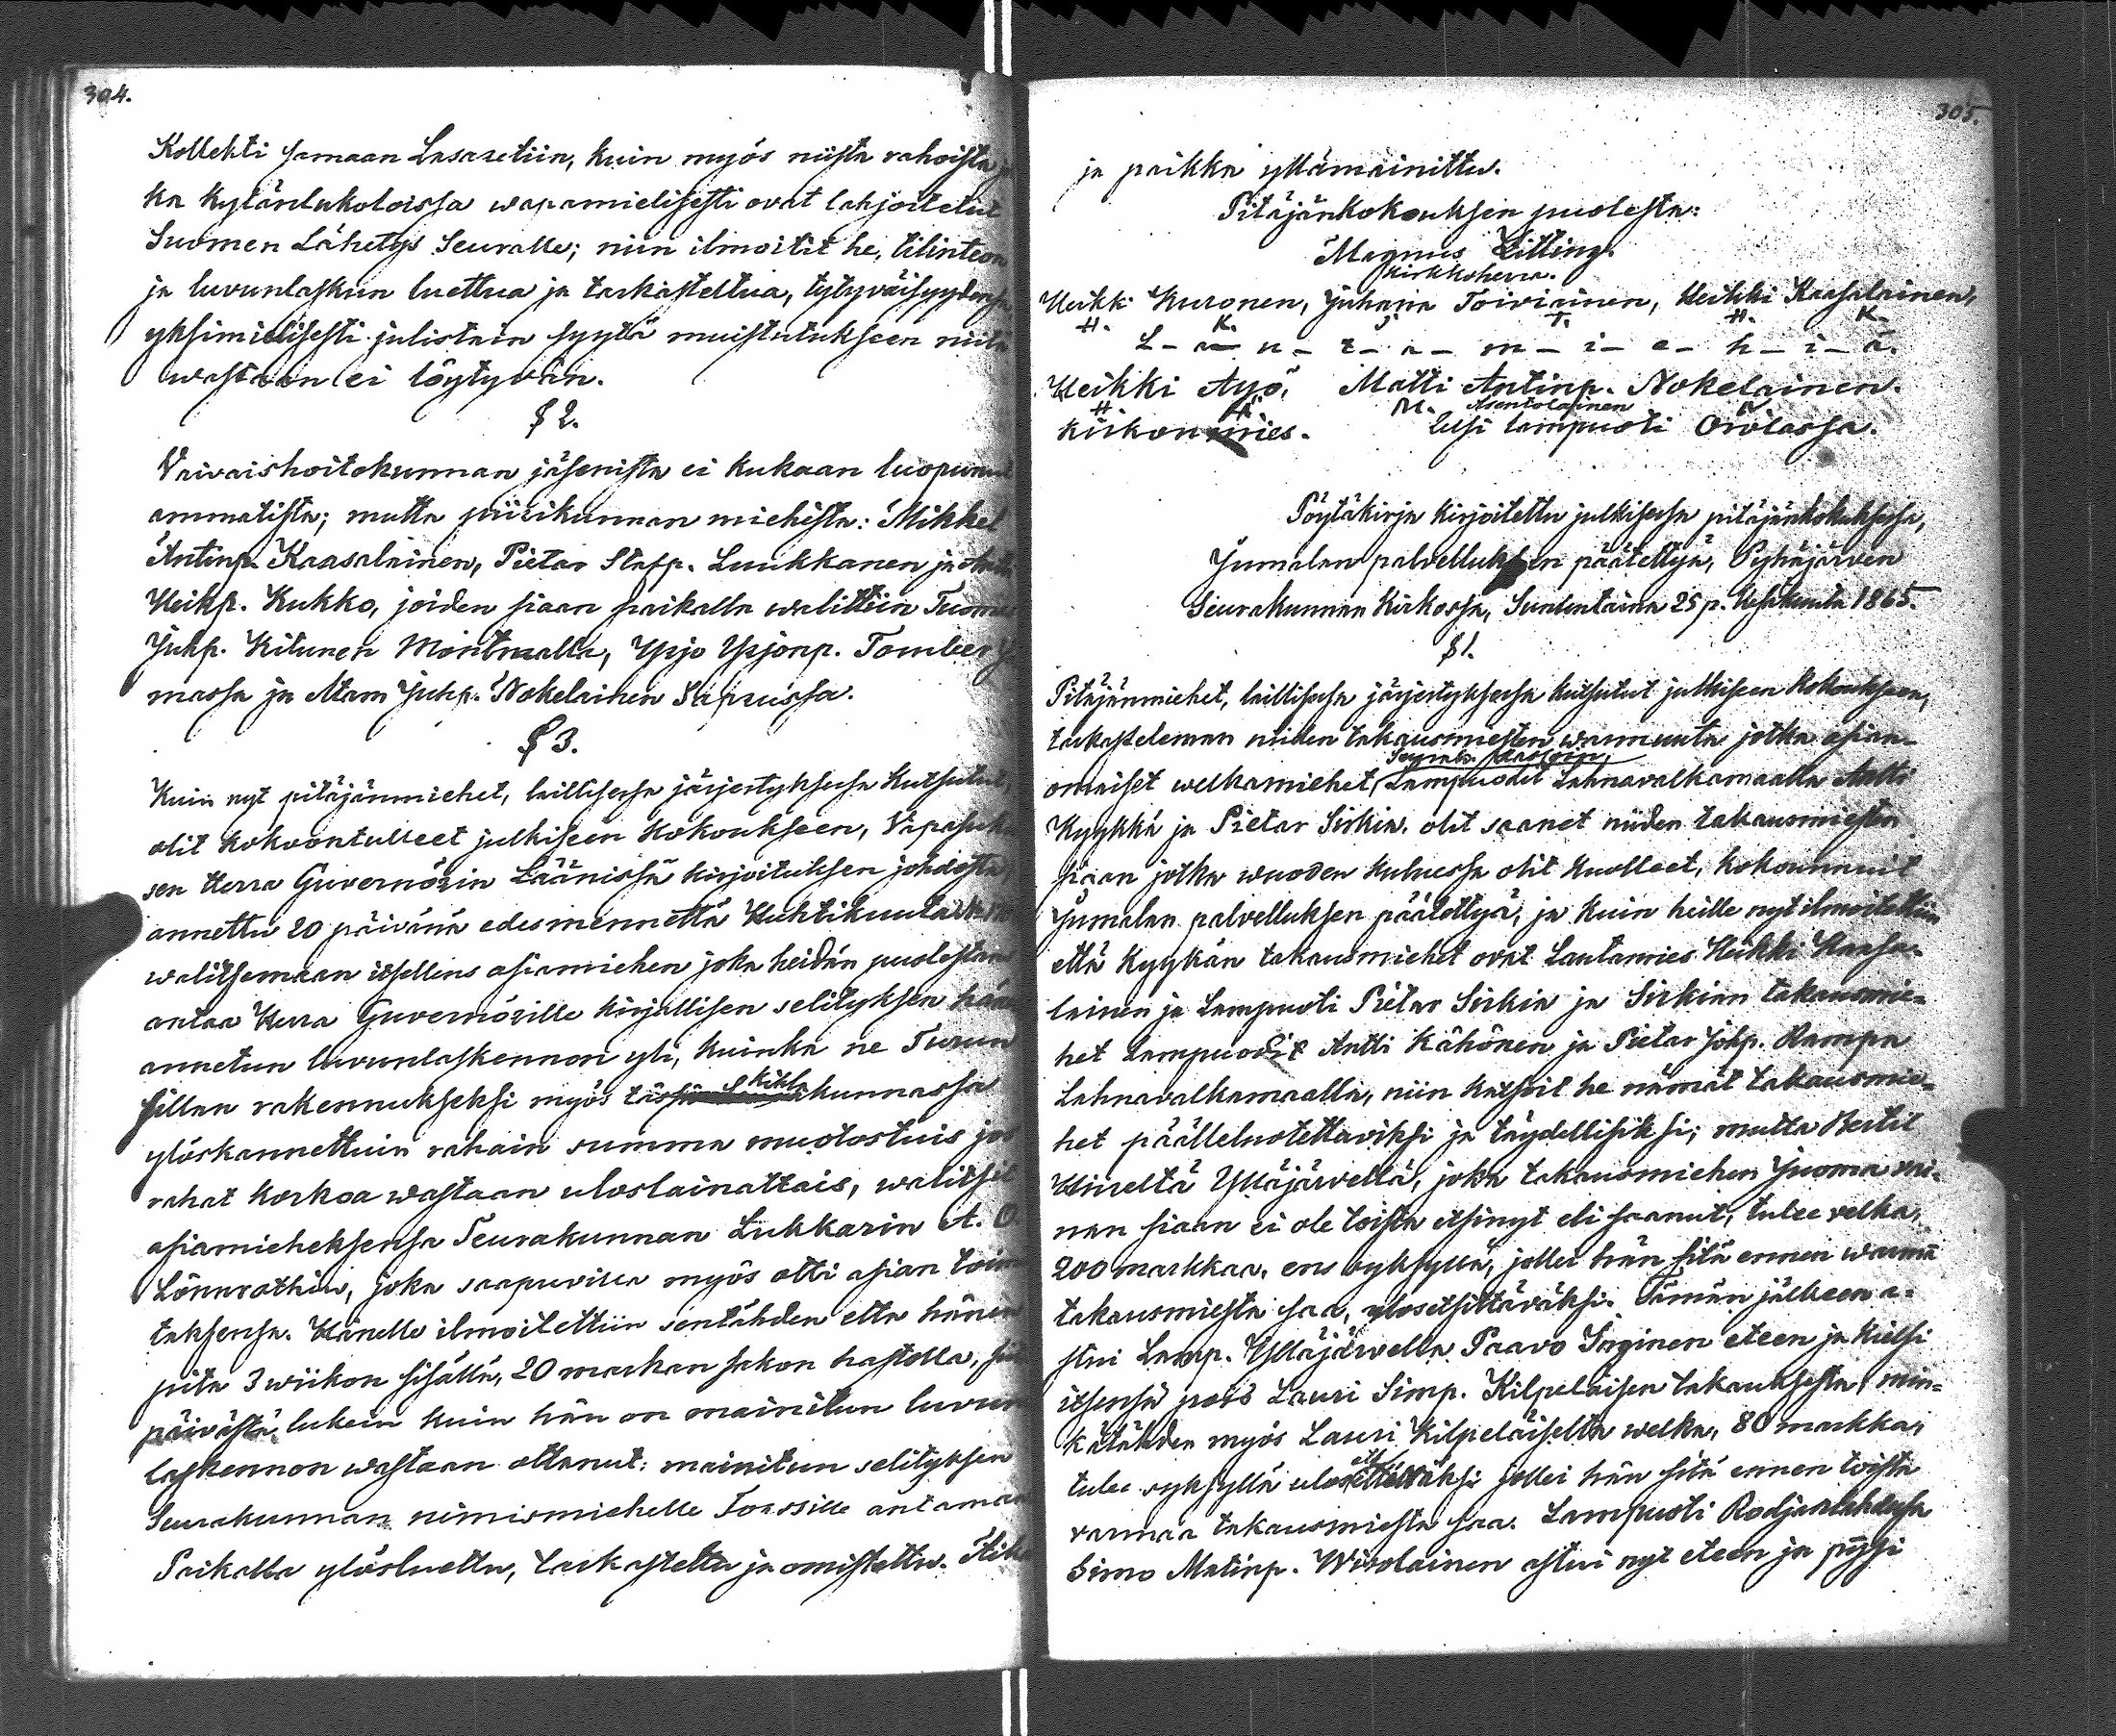 304.
Kollekti samaan Lasaretiin, kuin myös niista rahoista
ka kylänlukoloissa wapamielisesti ovat lahjoitetut
Suomen Lähetys Seuralle; niin ilmoitit he, tilinteon
ja luvunlaskun luettua ja tarkasteltua, tytyväisyydensä
yksimielisesti julistain syytä muistutukseen niitä
wastaan ei löytyvän.
§ 2.
Vaivaishoitokunnan jäsenista ei kukaan luopunut
ammatista; mutta piirikunnan miehista: Mikkel
Antinp. Kaasalainen, Pietar Stafp. Luukkanen ja
Heikp. Kukko, joiden siaan paikalla walittiin Tuomas
Juhp. Kitunen Montrualla, Yrjo Yrjonp. Tomber
massa ja Atam Juhp. Nokelainen Saprussa.
§ 3.
Kuin nyt pitäjänmiehet, laillisessa järjestyksessa kutsutut,
olit kokoontulleet julkiseen kokoukseen,
sen Herra Guvernörin Läänissä kirjoituksen johdosta
annettu 20 päivänä edesmennettä Huhtikuuta
walitsemaan itsellens asiamiehen joka heidän puolestans
antaa Herra Guvernörille kirjallisen selityksen
annetun luvunlaskennon yli, kuinka ne Turun
sillan rakennukseksi myös tässä kihlakunnassa
ylöskannettuin rahain summa muotostuis jos
rahat korkoa wastaan uloslainattais, walitsit
asiamieheksensa Seurakunnan Lukkarin A. O.
Lönnrothin, joka saapuvilla myös otti asian toim
taksensa. Hänelle ilmoitettiin sentähden etta hänen
pita 3 wiikon sisällä, 20 markan sakon hastolla,
päivästä lukein kuin hän on mainitun luvun
laskennon wastaan ottanut: mainitun selityksen
Seurakunnan nimismiehelle Forssille antaman
Paikalla ylösluettu, tarkastettu ja omistettu.
305.
ja paikka yllämainittu.
Pitäjänkokouksen puolesta:
Magnus Litting.
Kirkkoherra.
Heikki Kuronen, Juhana Toiviainen, Heikki Kaasalainen,
H. K. J. T. H. K.
L - a - u - t - a - m - i - e - h - i - ä.
Heikki Äyö, Matti Antinp. Nokelainen.
H. Ä. M. Asentolainen N
Kirkonmies. Lelsi lampuoti Orolassa.
Pöytäkirja kirjoitettu julkisessa pitäjänkokuksessa,
Jumalan palvelluksen päätettyä, Pyhäjärven
Seurakunnan Kirkossa, Sunnuntaina 25 p. Kesäkuuta 1865.
§ 1.
Pitäjänmiehet, laillisessa järjestyksessa kutsutut julkiseen kokoukseen,
tarkasteleman niiden takausmiesten warmuuta jotka asian-
omaiset welkamiehet, Lampuodit Lahnavalkamaalla Antti
Kyykkä ja Pietar Sirkia, olit saanet niiden takausmiesten
siaan jotka wuoden kuluessa olit kuolleet, kokounnuit
Jumalan palvelluksen päätettyä, ja kuin heille nyt ilmoitettiin
että Kyykän takausmiehet ovat Lautamies Heikki Kaasa-
lainen ja Lampuoti Pietar Sirkia ja Sirkian takausmie-
het Lampuodit Antti Kähönen ja Pietar Johp. Rampa
Lahnavalkamaalla, niin katsoit he nämät takausmie-
het päälleluotettaviksi ja täydellisiksi; mutta Bertil
Hinreltä Ylläjärvellä, joka takausmiehen Juoma mi-
nan siaan ei ole toista etsinyt eli saanut, tulee velka,
200 markkaa, ens syksyllä, jollei hän sitä ennen warma
takausmiesta saa, ulosetsittäväksi. Tämän jälkeen a-
stui Lamp. Ylläjärvella Paavo Inginen eteen ja kielsi
itsensä pois Lauri Simp. Kilpelaisen takauksesta, min-
kätähden myös Lauri Kilpeläiselta welka, 80 markkaa,
tulee syksyllä ulosetsittäväksi jollei hän sitä ennen toista
varmaa takausmiesta saa. Lampuoti Rodjanlahdessa
Simo Matinp. Wirolainen astui nyt eteen ja pyysi